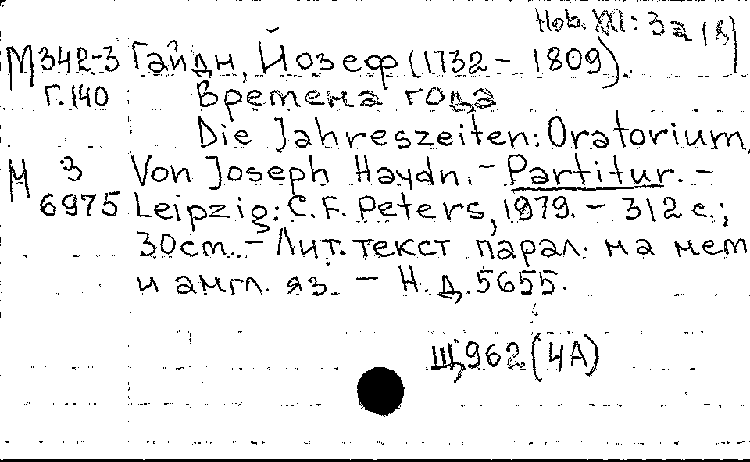 Нов. XII: 3а (8)
М 342-3 Гайдн, Йозеф (1732 - 1809).
Г.140 Времена года
Die Jahreszeiten: Oratorium,
М 3 Von Joseph Haydn. - Partitur. -
6975 Leipzig: C. F. Peters, 1979. - 312 с.;
30cm. - Лит. текст парал. на нем
и англ. яз. - Н. д. 5655.
Щ962 (4А)